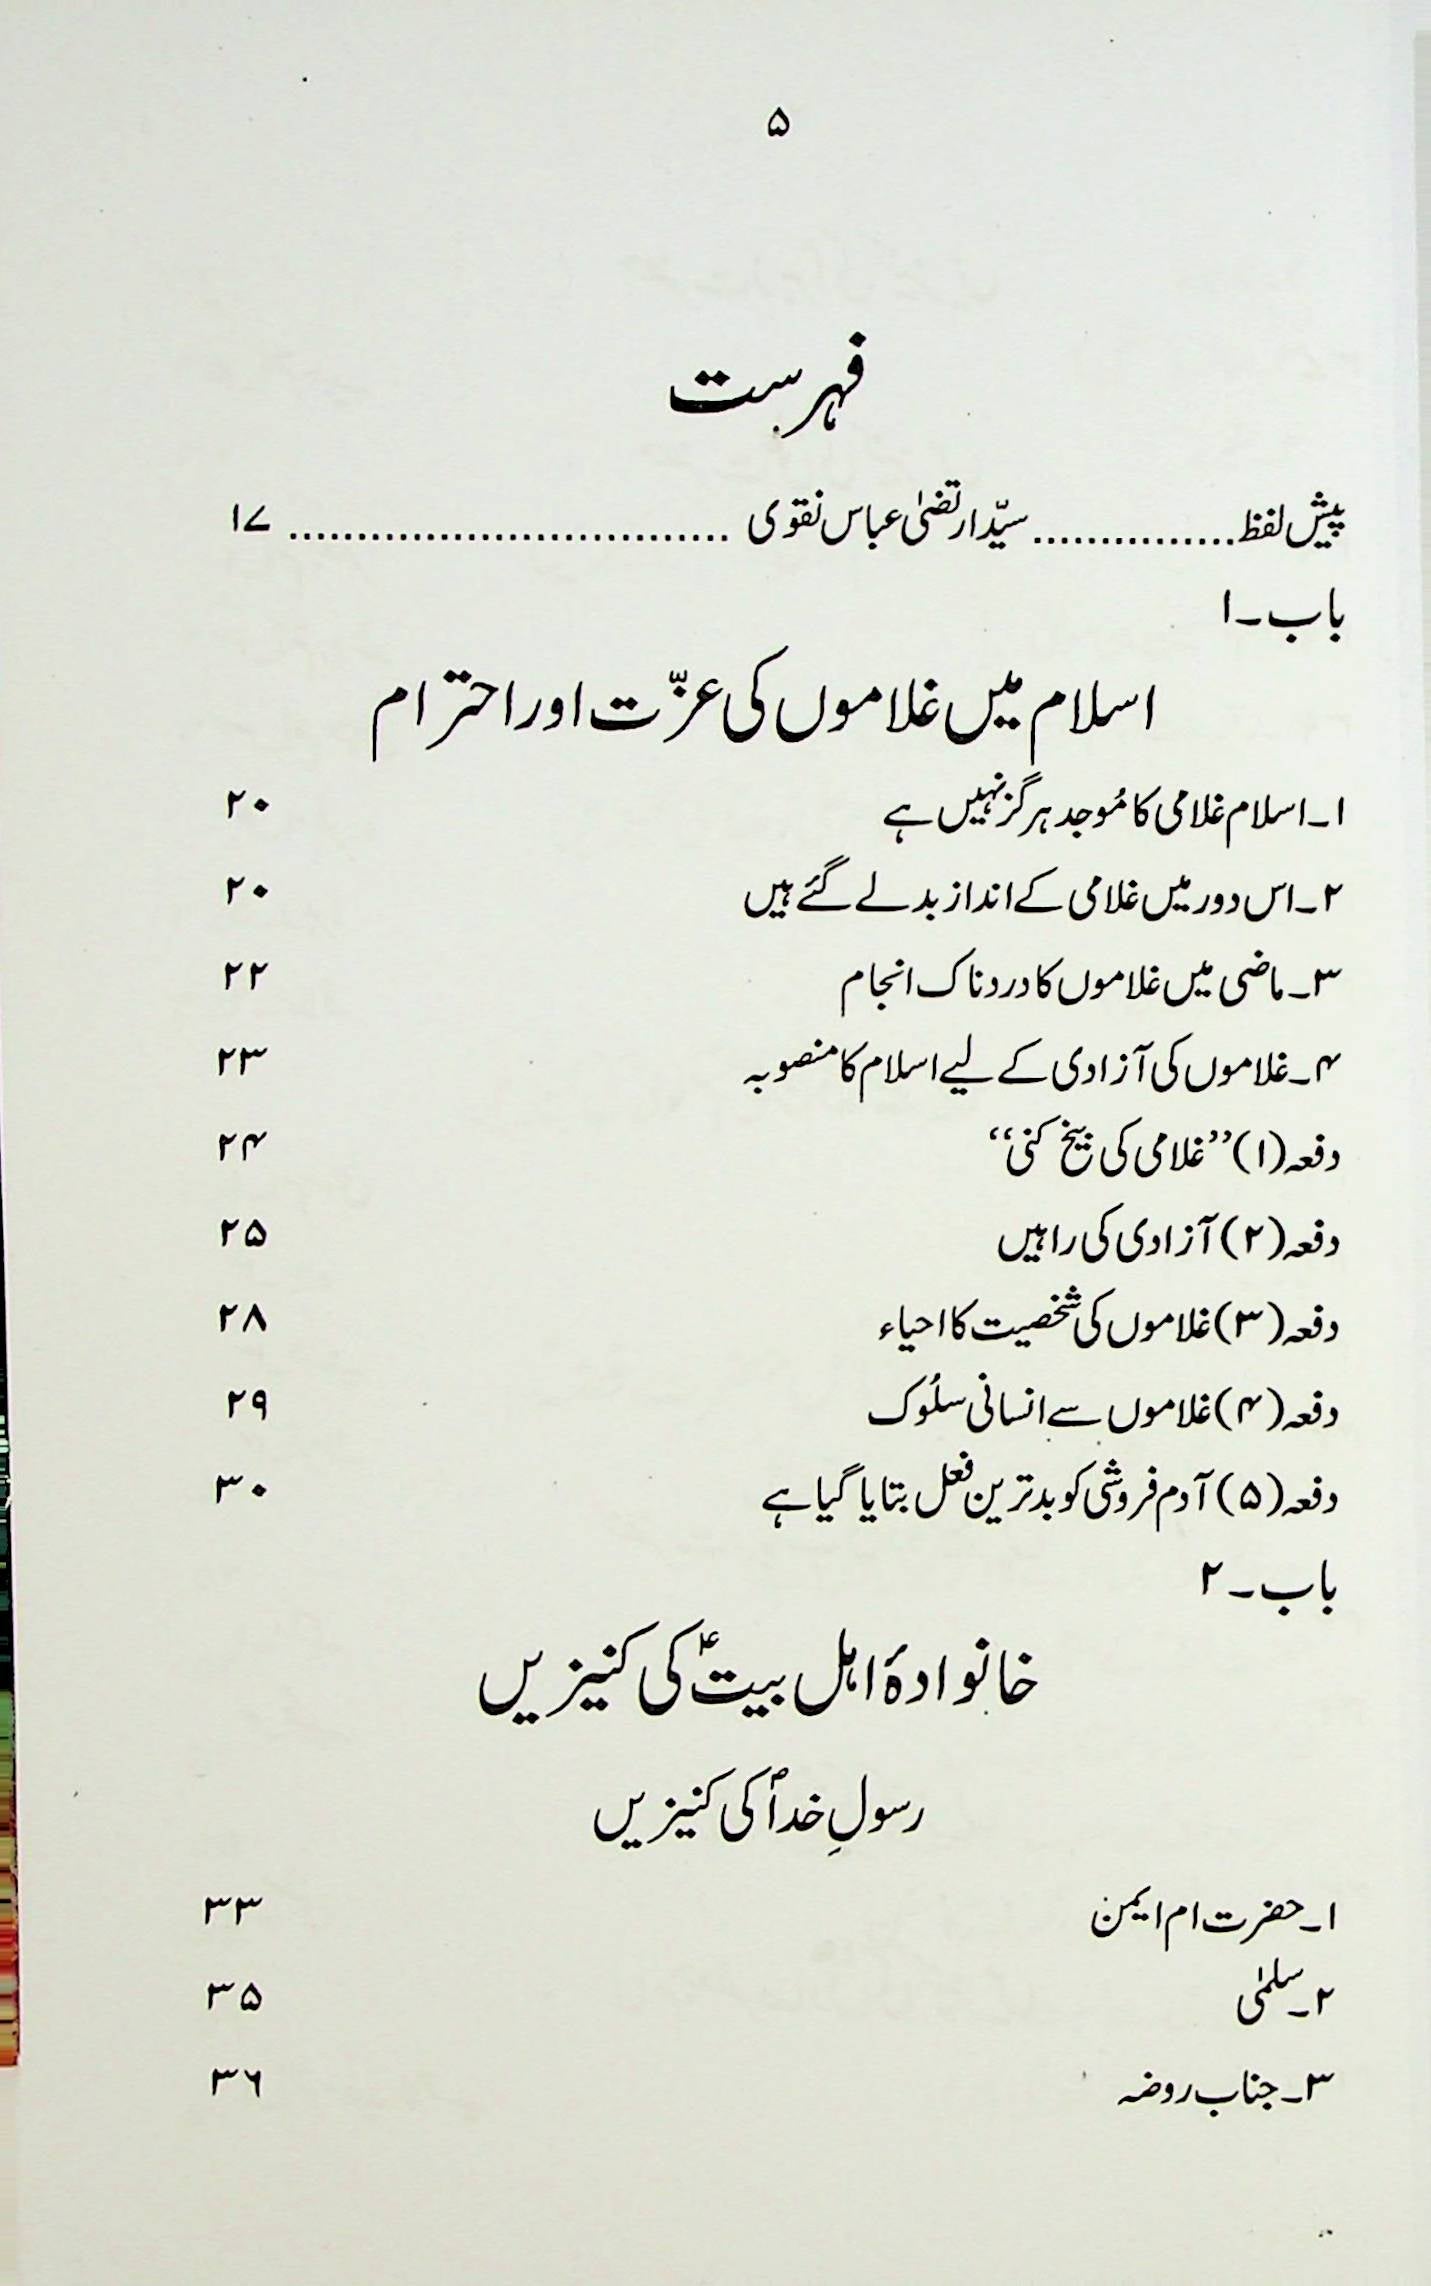 ۵
فہرست
پیش لفظ............... سیّد ارتضیٰ عباس نقوی ................................. ۱۷
باب۔۱
اسلام میں غلاموں کی عزّت اور احترام
۱۔اسلام غلامی کا مُوجد ہرگز نہیں ہے ۲۰
۲۔اس دور میں غلامی کے انداز بدلے گئے ہیں ۲۰
۳۔ماضی میں غلاموں کا دردناک انجام ۲۲
۴۔غلاموں کی آزادی کے لیے اسلام کا منصوبہ ۲۳
دفعہ(۱)”غلامی کی بیخ کنی“ ۲۴
دفعہ(۲)آزادی کی راہیں ۲۵
دفعہ(۳)غلاموں کی شخصیت کا احیاء ۲۸
دفعہ(۴)غلاموں سے انسانی سلُوک ۲۹
دفعہ(۵)آدم فروشی کو بدترین فعل بتایا گیا ہے ۳۰
باب۔۲
خانوادۂ اہل بیتؑ کی کنیزیں
رسولِ خداؐ کی کنیزیں
۱۔حضرت ام ایمن ۳۳
۲۔سلمٰی ۳۵
۳۔جناب روضہ ۳۶